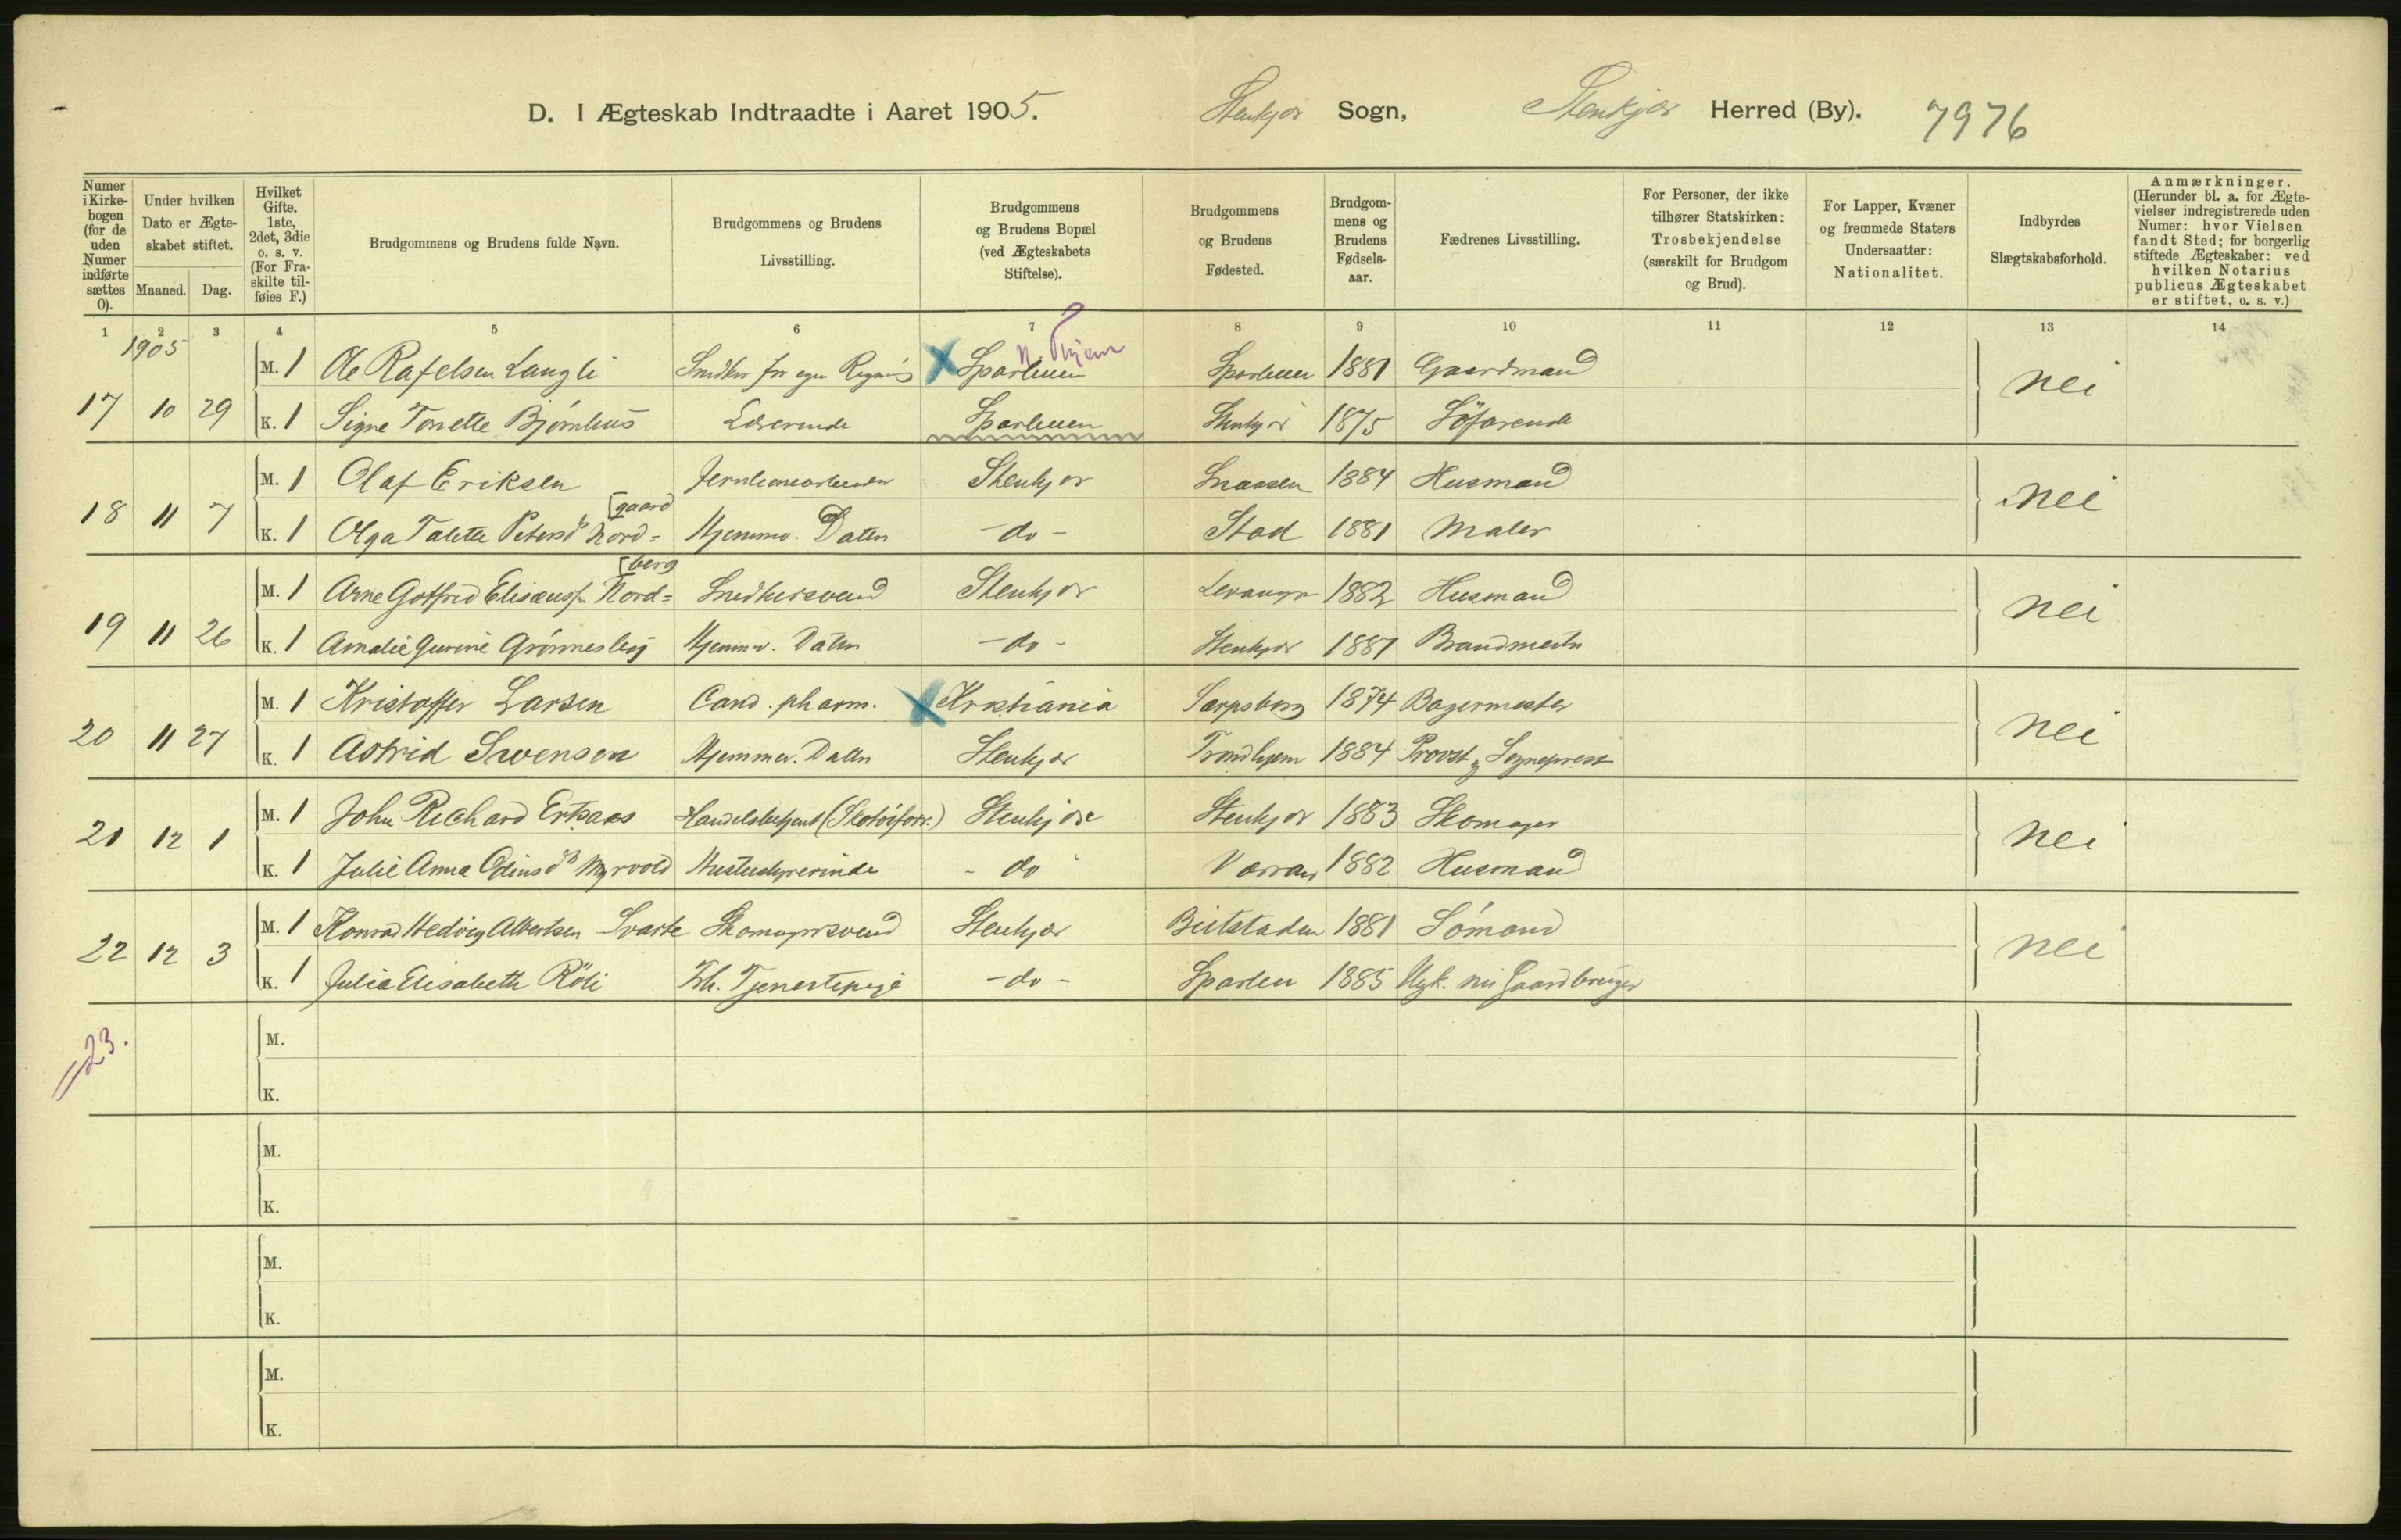 D. I Ægteskab Indtraadte i Aaret 1905. Stenkjær Sogn, Stenkjær Herred (By). 7976
Numer i Kirkebogen (for de uden Numer indførte sættes 0).
Under hvilken Dato er Ægteskabet stiftet.
Maaned. Dag.
Hvilket Gifte. 1ste, 2det, 3die o. s. v. (For Fraskilte tilføies F.)
Brudgommens og Brudens fulde Navn.
Brudgommens og Brudens Livsstilling.
Brudgommens og Brudens Bopæl (ved Ægteskabets Stiftelse).
Brudgommens og Brudens Fødested.
Brudgommens og Brudens Fødselsaar.
Fædrenes Livsstilling.
For Personer, der ikke tilhører Statskirken: Trosbekjendelse (særskilt for Brudgom og Brud).
For Lapper, Kvæner og fremmede Staters Undersaatter: Nationalitet.
Indbyrdes Slægtskabsforhold.
Anmærkninger. (Herunder bl. a. for Ægtevielser indregistrerede uden Numer: hvor Vielsen fandt Sted; for borgerlig stiftede Ægteskaber: ved hvilken Notarius publicus Ægteskabet er stiftet, o. s. v.)
1 2 3 4 5 6 7 8 9 10 11 12 13 14
1905
N. Thjem
M. 1 Ole Rafelsen Langli Snedker for egen X Sparbuen Sparbuen 1881 Gaardmand nei
17 10 29 K. 1 Signe Tonette Bjørnhus Lærerinde Sparbuen Stenkjær 1875 Søfarende
M. 1 Olaf Eriksen Jernbanearbeider Stenkjær Snaasen 1884 Husmand nei
[gaard
18 11 7 K. 1 Olga Talette Petersd. Nord= Hjemmev. Datter - do - Stod 1881 Maler
[berg
M. 1 Arne Gotfred Elisæuss. Nord= Snedkersvend Stenkjær Levanger 1882 Husmand nei
19 11 26 K. 1 Amalie Gurine Grønnesby Hjemmev. Datter - do - Stenkjær 1881 Brandmester
M. 1 Kristoffer Larsen Cand. pharm. X Kristiania Sarpsborg 1874 Bagermester nei
20 11 27 K. 1 Astrid Svensen Hjemmev. Datter Stenkjær Trondhjem 1884 Provst og Sogneprest
M. 1 John Richard Handelsbetjent (Skotøiforr.) Stenkjær Stenkjær 1883 Skomager nei
21 12 1 K. 1 Julie Anna Odinsd. Myrvold - do - Værran 1882 Husmand
M. 1 Konrad Hedvig Albertsen Svarte Skomagersvend Stenkjær Beitstaden 1881 Sømand nei
22 12 3 K. 1 Julia Elisabeth Röli Fh. Tjenestepige - do - Sparbu 1885 Gaardbruger
23.
M.
K.
M.
K.
M.
K.
M.
K.